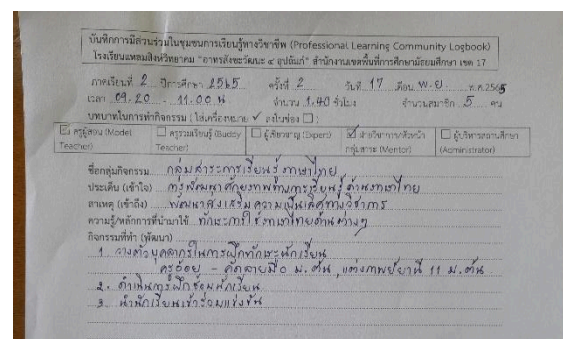 บันทึกการมีส่วนร่วมในชุมชนการเรียนรู้ทางวิชาชีพ (Professional Learning Community Logbook)
โรงเรียนแหลมสิงห์วิทยาคม "อาทรสังขะวัฒนะ ๔ อุปถัมภ์" สำนักงานเขตพื้นที่การศึกษามัธยมศึกษา เขต 17
ภาคเรียนที่ 2 ปีการศึกษา 2565 ครั้งที่ 2 วันที่ 17 เดือน พ.ย. พ.ศ.2565
เวลา 09.20 - 11.00 น จำนวน 1.40 ชั่วโมง จำนวนสมาชิก 5 คน
บทบาทในการทำกิจกรรม (ใส่เครื่องหมาย ✓ ลงในช่อง ☐)
☑ ครูผู้สอน (Model Teacher) ☐ ครูร่วมเรียนรู้ (Buddy Teacher) ☐ ผู้เชี่ยวชาญ (Expert) ☑ ฝ่ายวิชาการ/หัวหน้ากลุ่มสาระ (Mentor) ☐ ผู้บริหารสถานศึกษา (Administrator)
ชื่อกลุ่มกิจกรรม กลุ่มสาระการเรียนรู้ภาษาไทย
ประเด็น (เข้าใจ) การพัฒนาศักยภาพทางการเรียนรู้ด้านภาษาไทย
สาเหตุ (เข้าถึง) พัฒนาส่งเสริมความเป็นเลิศทางวิชาการ
ความรู้/หลักการที่นำมาใช้ ทักษะการใช้ภาษาไทยด้านต่างๆ
กิจกรรมที่ทำ (พัฒนา)
1. วางตัวบุคลากรในการฝึกทักษะนักเรียน
ครูอ้อย - คัดลายมือ ม.ต้น, แต่งกาพย์ยานี 11 ม.ต้น
2. ดำเนินการฝึกซ้อมนักเรียน
3. นำนักเรียนเข้าร่วมแข่งขัน